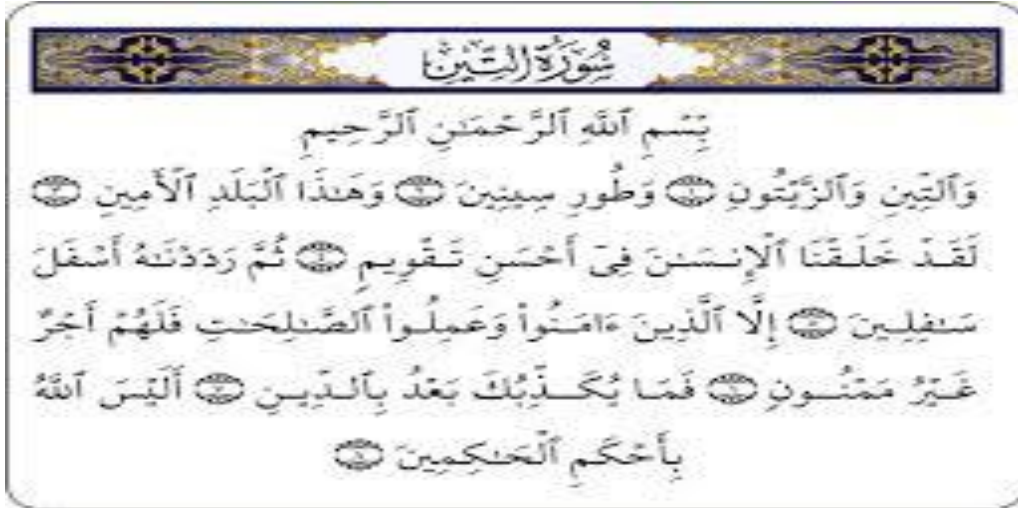 سُورَةُ التِّينِ
بِسْمِ ٱللَّهِ ٱلرَّحْمَٰنِ ٱلرَّحِيمِ
وَٱلتِّينِ وَٱلزَّيْتُونِ ١ وَطُورِ سِينِينَ ٢ وَهَٰذَا ٱلْبَلَدِ ٱلْأَمِينِ ٣
لَقَدْ خَلَقْنَا ٱلْإِنسَٰنَ فِىٓ أَحْسَنِ تَقْوِيمٍ ٤ ثُمَّ رَدَدْنَٰهُ أَسْفَلَ
سَٰفِلِينَ ٥ إِلَّا ٱلَّذِينَ ءَامَنُوا۟ وَعَمِلُوا۟ ٱلصَّٰلِحَٰتِ فَلَهُمْ أَجْرٌ
غَيْرُ مَمْنُونٍ ٦ فَمَا يُكَذِّبُكَ بَعْدُ بِٱلدِّينِ ٧ أَلَيْسَ ٱللَّهُ
بِأَحْكَمِ ٱلْحَٰكِمِينَ ٨